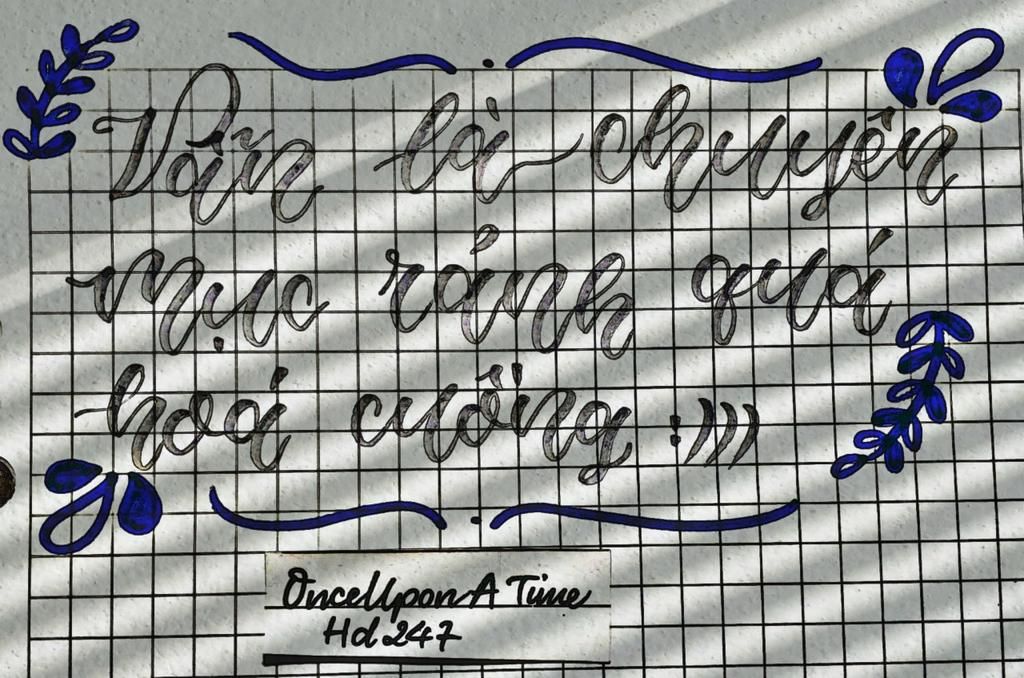 Vẫn là chuyên
mục rảnh quá
hoá cuồng :)))
OnceUpon A Time
Hd 247